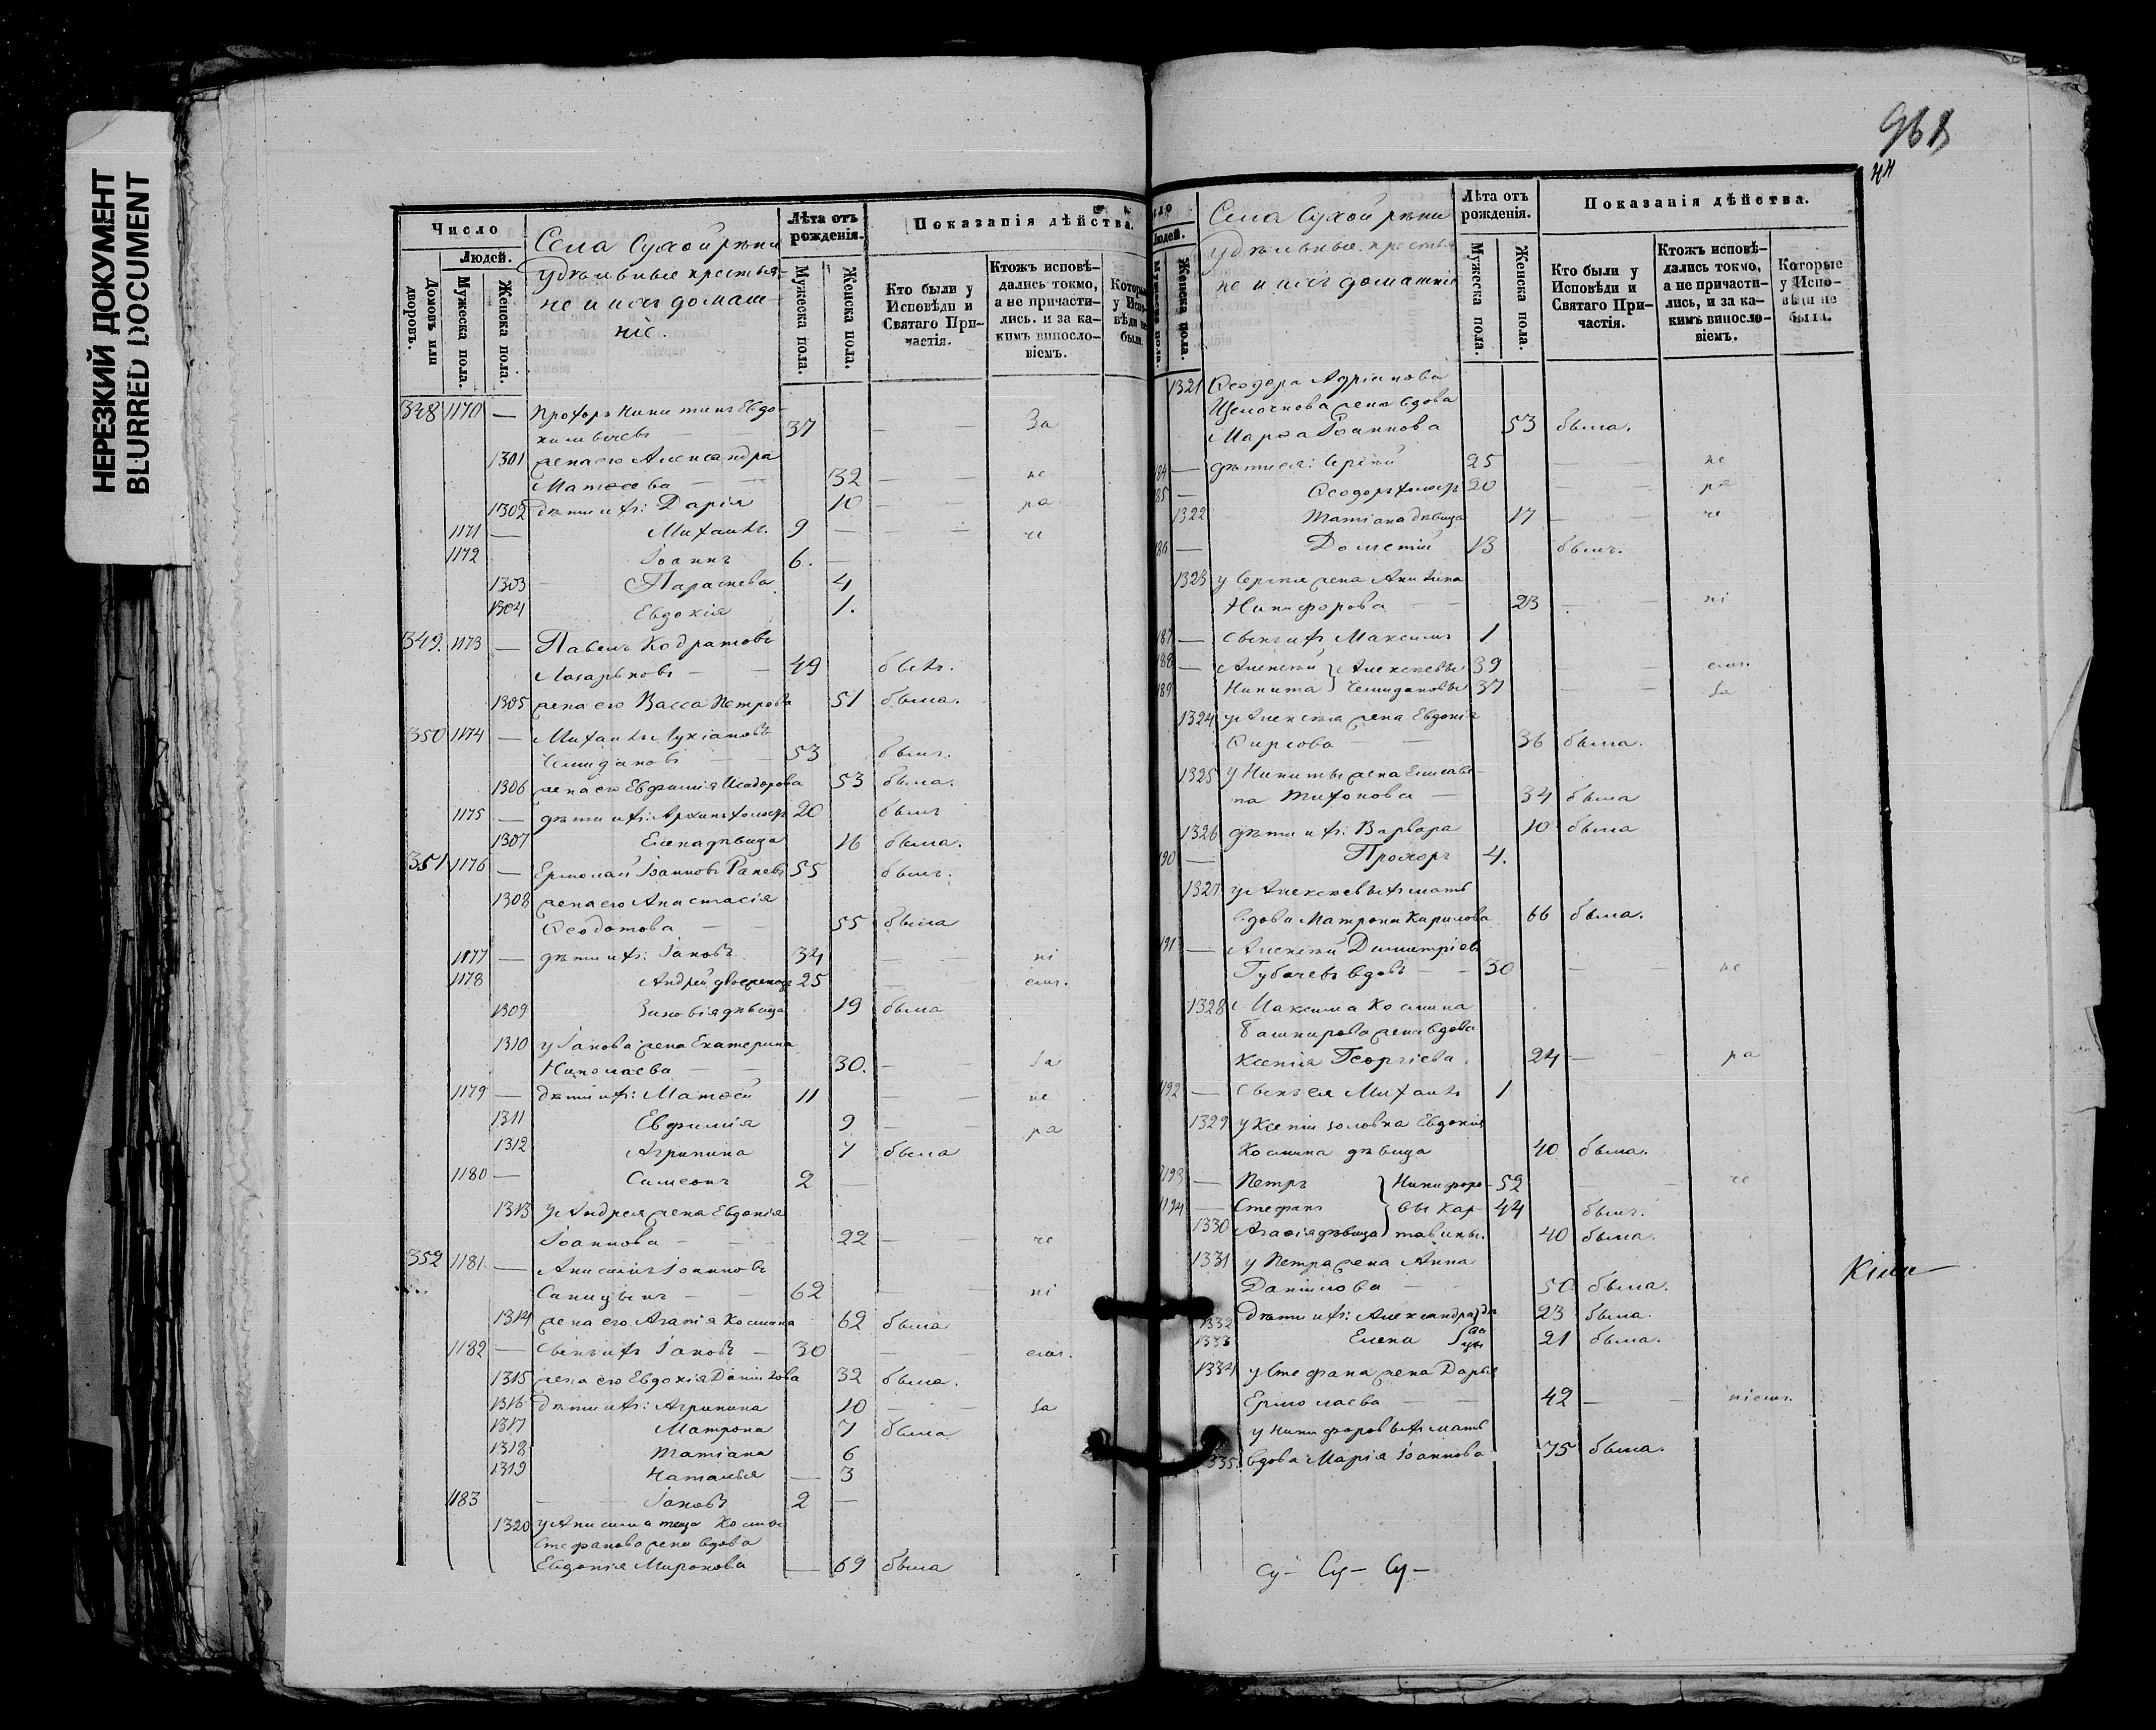 НЕРЕЗКИЙ ДОКУМЕНТ
BLURRED DOCUMENT
Число
Людей.
Домовъ или дворовъ.
Мужеска пола.
Женска пола.
Села Сухой рѣки
удѣльные крестья-
не и ихъ домаш-
ніе.
Лѣта отъ рожденія.
Мужеска пола.
Женска пола.
Показанія дѣйства.
Кто были у Исповѣди и Святаго При-частія.
Ктожъ исповѣ-дались токмо, а не причасти-лись. и за ка-кимъ виносло-віемъ.
348 1170 — Прохоръ Никитинъ Евдо-
кимычевъ — 37 — — За
1301 жена его Александра
Матѳеева — — 32 — — не
1302 дѣти ихъ: Дарія 10 — ра
1171 — Михаилъ 9 — — че
1172 Іоаннъ 6. —
1303 Параскева 4
1304 Евдокія 1.
349. 1173 — Павелъ Кодратовъ
Лазарьковъ — — 49 былъ.
1305 жена его Васса Петрова 51 была.
350 1174 — Михаилъ Лукіановъ
Чемидановъ — — 53 былъ.
1306 жена его Евфимія Исидорова 53 была.
1175 — дѣти ихъ: Архипъ холостъ 20 былъ
1307 Елена дѣвица 16 была.
351 1176 — Ермолай Іоанновъ Раневъ 55 былъ.
1308 жена его Анастасія
Ѳеодотова — — 55 была
1177 — дѣти ихъ: Іаковъ 34 — — ні
1178 Андрей двоеженецъ 25 — емъ.
1309 Зиновія дѣвица 19 была
1310 у Іакова жена Екатерина
Николаева — — 30. — — За
1179 — дѣти ихъ: Матѳей 11 — — не
1311 Евфимія 9 — — ра
1312 Агрипина 7 была
1180 — Симеонъ 2 —
1313 у Андрея жена Евдокія
Іоаннова — — 22 — — че
352 1181 — Анисимъ Іоанновъ
Синицынъ — — 62 — — ні
1314 жена его Агапія Космина 62 была
1182 — сынъ ихъ Іаковъ — 30 — — емъ.
1315 жена его Евдокія Данилова 32 была.
1316 дѣти ихъ: Агрипина 10 — За
1317 Матрона 7 была
1318 Татіана 6
1319 Наталья — 3
1183 — — Іаковъ 2 —
1320 у Анисима теща Космы
Стефанова жена вдова
Евдокія Миронова — 69 была
968
Людей.
Женска пола.
Села Сухой рѣки
удѣльные крестья
не и ихъ домашніе
Лѣта отъ рожденія.
Мужеска пола.
Женска пола.
Показанія дѣйства.
Кто были у Исповѣди и Святаго При-частія.
Ктожъ исповѣ-дались токмо, а не причасти-лись, и за ка-кимъ виносло-віемъ.
Которые у Испо-вѣди не были.
1321 Ѳеодора Адріанова
Щелочнова жена вдова
Марѳа Іоаннова 53 была.
84 — дѣти ея: Сергій 25 — — не
85 — Ѳеодоръ холостъ 20 — — ра
1322 Татіана дѣвица 17 — — че
86 — Дометій 13 былъ.
1323 у Сергія жена Акилина
Никифорова — — 23 — — ні
187 — сынъ ихъ Максимъ 1
188 — Алексѣй } Алексѣевы 39 — — емъ.
189 Никита } Чемидановы 37 — — За
1324 у Алексѣя жена Евдокія
Ѳирсова — — 36 была.
1325 у Никиты жена Елисаве-
та Тихонова — 34 была
1326 дѣти ихъ: Варвара 10 была
190 — Прохоръ 4.
1327 у Алексѣевыхъ мать
вдова Матрона Кирилова 66 была.
191 — Алексѣй Димитріевъ
Губачевъ вдовъ — — 30 — — не
1328 Максима Космина
Башкирова жена вдова
Ксенія Георгіева 24 — — ра
1192 — сынъ ея Михаилъ 1
1329 у Ксеніи золовка Евдокія
Космина дѣвица 40 была.
1193 — Петръ } Никифоро- 52 — — че
1194 — Стефанъ } вы Кар- 44 былъ.
1330 Агаѳія дѣвица } тавины. 40 была.
1331 у Петра жена Анна
Данилова — — 50 была.
1332 дѣти ихъ: Александра } дѣ 23 была.
1333 Елена } вицы 21 была.
1334 у Стефана жена Дарья
Ермолаева — — 42 — — ніемъ.
у Никифоровыхъ мать
1335. вдова Марія Іоаннова 75 была.
Су— Су— Су—